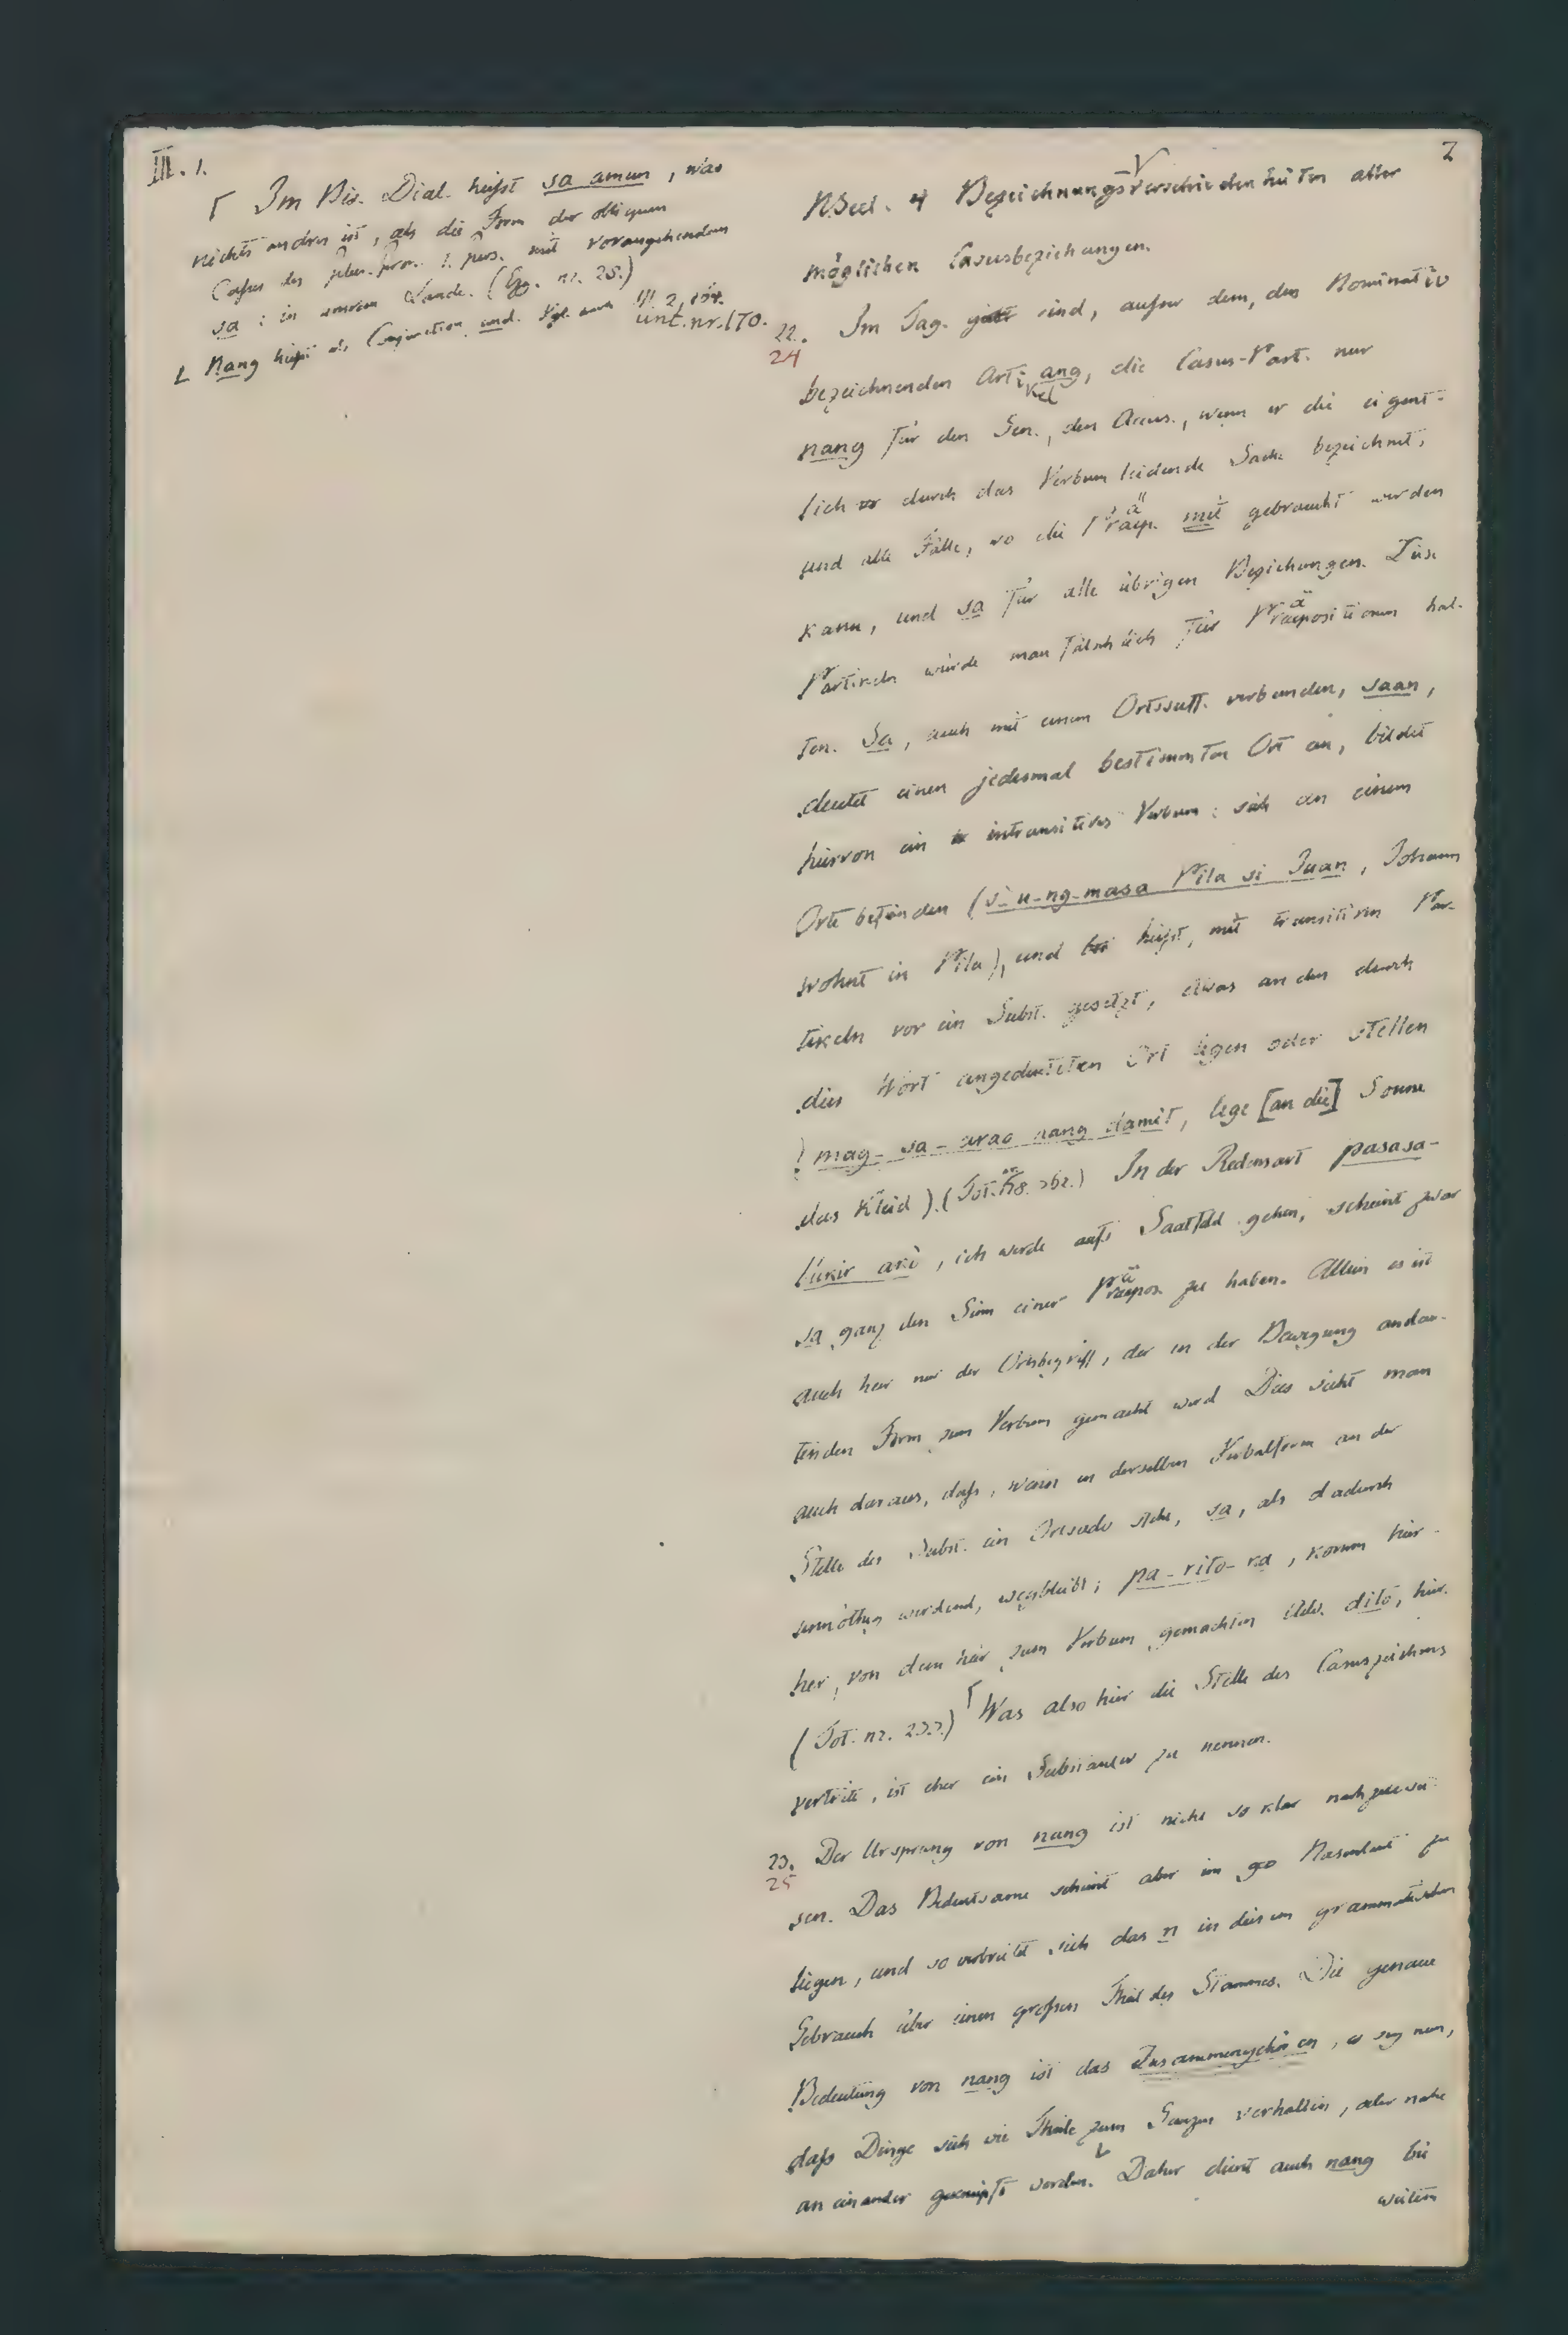 III. 1.
Γ Im Bis. Dial. heißt sa amun, was
nichts andres ist, als die Form der obliquen
Casus des plur. pron. 1. pers. mit vorangehendem
sa: in unsrem Lande. (Ezg. nr. 25.)
L Nang heißt als Conjunction und. Vgl. auch III. 2,
unt. nr. 170.
2
4 Bezeichnungsverschiedenheiten aller
möglichen Casusbeziehungen.
22. Im Tag. sind, außer dem, den Nominativ
24
bezeichnenden Artikel ang, die Casus-Part. nur
nang für den Gen., den Accus., wenn er die eigent-
lich durch das Verbum leidende Sache bezeichnet,
und alle Fälle, wo die Präp. mit gebraucht werden
kann, und sa für alle übrigen Beziehungen. Diese
Partikeln würde man fälschlich für Präpositionen hal-
ten. Sa, auch mit einem Ortssuff. verbunden, saan,
deutet einen jedesmal bestimmten Ort an, bildet
hiervon ein intransitives Verbum: sich an einem
Orte befinden (s-u-ng-masa Pila si Juan, Johann
wohnt in Pila), und heißt, mit transitiven Par-
tikeln vor ein Subst. gesetzt, etwas an den durch
dies Wort angedeuteten Ort legen oder stellen
(mag-sa-arao nang damit, lege [an die] Sonne
das Kleid). (Tot. nr. 262.) In der Redensart pasasa-
lukir akò, ich werde aufs Saatfeld gehen, scheint zwar
sa ganz den Sinn einer Präpos. zu haben. Allein es ist
auch hier nur der Ortsbegriff, der in der Bewegung andeu-
tenden Form zum Verbum gemacht wird. Dies sieht man
auch daraus, daß, wenn in derselben Verbalform an der
Stelle des Subst. ein Ortsadv. steht, sa, als dadurch
unnöthig werdend, wegbleibt; pa-rito-ka, komm hier-
her, von dem hier zum Verbum gemachten Adv. dito, hier.
(Tot. nr. 233.) Γ Was also hier die Stelle des Casuszeichens
vertritt, ist eher ein Substantiv zu nennen.
23. Der Ursprung von nang ist nicht so klar nachzuwei-
25
sen. Das Bedeutsame scheint aber im Nasenlaut zu
liegen, und so verbreitet sich das n in diesem grammatischen
Gebrauch über einen großen Theil des Stammes. Die genaue
Bedeutung von nang ist das Zusammengehören, es sey nun,
daß Dinge sich wie Theile zum Ganzen verhalten, oder nahe
an einander geknüpft werden. L Daher dient auch nang bei
weitem